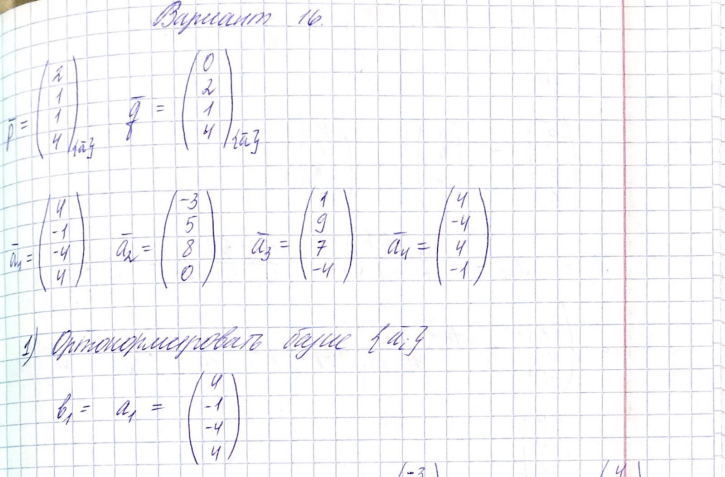 Вариант 16.
p̄ = (2 1 1 4){ā} q̄ = (0 2 1 4){ā}
ā₁ = (4 -1 -4 4) ā₂ = (-3 5 8 0) ā₃ = (1 9 7 -4) ā₄ = (4 -4 4 -1)
1) Ортонормировать базис {āᵢ}
b₁ = a₁ = (4 -1 -4 4)
(-3 (4